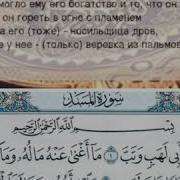 могло ему его богатство и то, что он
он гореть в огне с пламенем
а его (тоже) - носильщица дров,
е у нее - (только) веревка из пальмов
سُورَةُ الْمَسَدِ
بِسْمِ اللَّهِ الرَّحْمَنِ الرَّحِيمِ
بِي لَهَبٍ وَتَبَّ ١ مَا أَغْنَى عَنْهُ مَالُهُ وَمَا